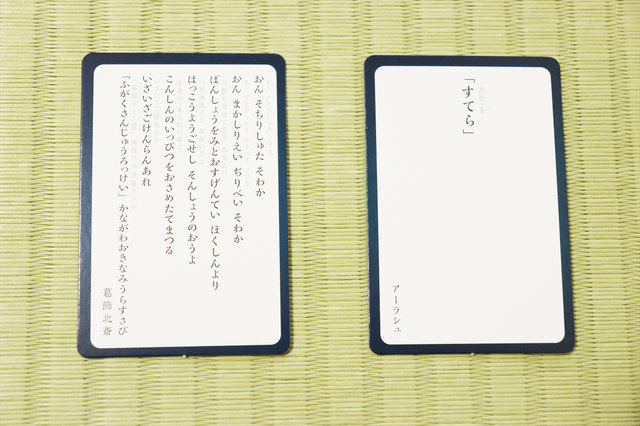 おん そちりしゅた そわか
おん まかしりえい ぢりべい そわか
ばんしょうをみとおすげんてい ほくしんより
はっこうようごせし そんしょうのおうよ
こんしんのいっぴつをおさめたてまつる
いざいざごけんらんあれ
「ふがくさんじゅうろっけい」 かながわおきなみうらすさび
葛飾北斎
「すてら」
アーラシュ